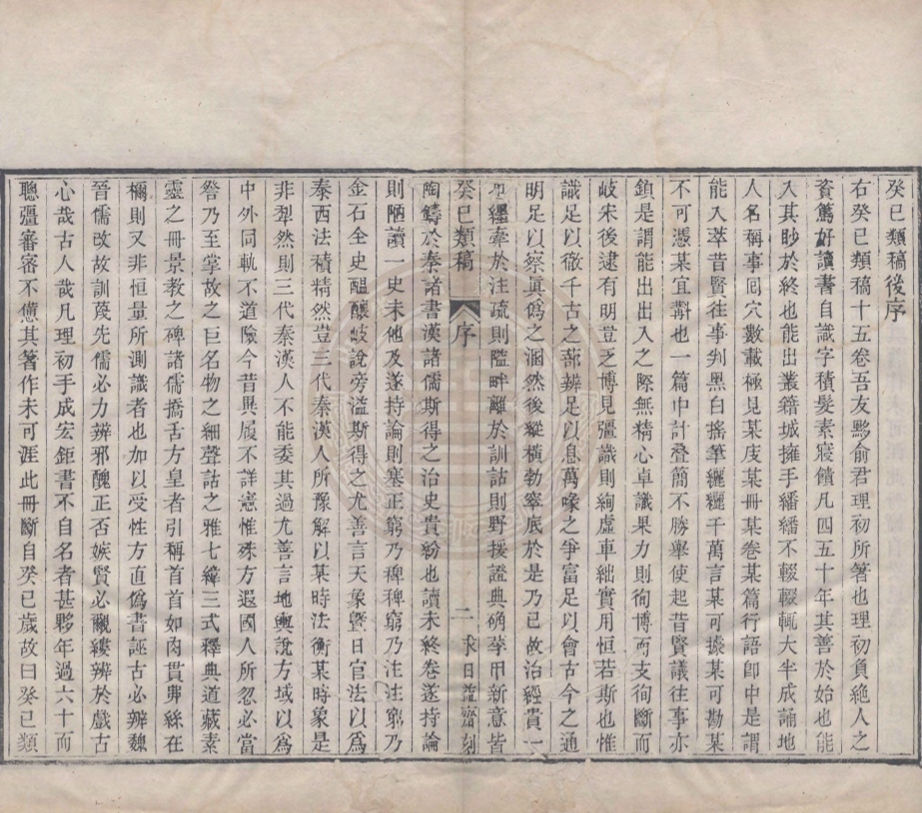 癸巳類稿後序
右癸巳類稿十五卷吾友黟俞君理初所箸也理初負絶人之
資篤好讀書自識字積髮素寢饋凡四五十年其善於始也能
入其眇於終也能出叢籍城擁手繙繙不輟輟輒大半成誦地
人名稱事回穴數載極見某庋某冊某卷某篇行語卽中是謂
能入萃昔賢往事判黑白搖筆纚纚千萬言某可據某可勘某
不可憑某宜斠也一篇中計疊簡不勝舉使起昔賢議往事亦
鎖是謂能出出入之際無精心卓識果力則徇博而支徇斷而
岐宋後逮有明豈乏博見彊識則絢虛車絀實用恒若斯也惟
識足以徹千古之蔀辨足以息萬喙之爭富足以會古今之通
明足以察眞僞之溷然後縱橫勃窣底於是乃已故治經貴一
經牽於注疏則隘畔離於訓詁則野援證典确荂甲新意皆
癸巳類稿
序
二
求日益齋刻
陶鑄於秦諸書漢諸儒斯得之治史貴紛也讀未終卷遂持論
則陋讀一史未他及遂持論則塞正窮乃稗稗窮乃注注窮乃
金石全史醞釀岐說旁溢斯得之尤善言天象曁日官法以爲
泰西法積精然豈三代秦漢人所豫解以某時法衡某時象是
非犁然則三代秦漢人不能委其過尤善言地輿說方域以爲
中外同軌不道險今昔異履不詳悥惟殊方遐國人所忽必當
詧乃至掌故之巨名物之細聲詁之雅七緯三式釋典道藏素
靈之冊景教之碑諸儒撟舌方皇者引稱首首如肉貫丳絲在
禰則又非恒量所測識者也加以受性方直僞書誣古必辨魏
晉儒改故訓葠先儒必力辨邪醜正否嫉賢必覼縷辨於戲古
心哉古人哉凡理初手成宏鉅書不自名者甚夥年過六十而
聰彊審審不憊其箸作未可涯此冊斷自癸巳歲故曰癸巳類